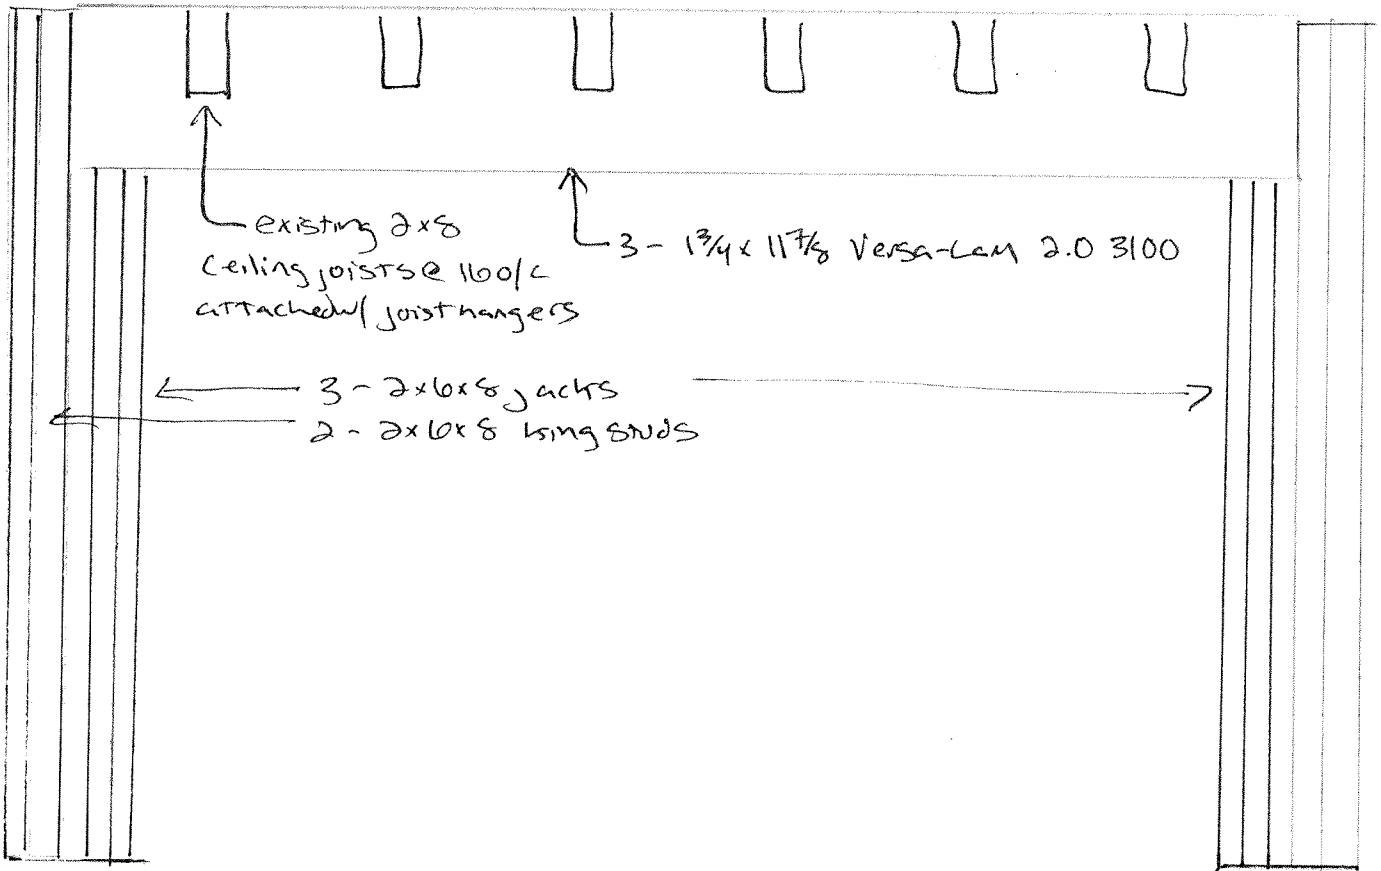 existing 2x8
ceiling joists @ 16 o/c
attached w/ joist hangers
3 - 1 3/4 x 11 7/8 Versa-Lam 2.0 3100
3 - 2x6x8 jacks
2 - 2x6x8 king studs